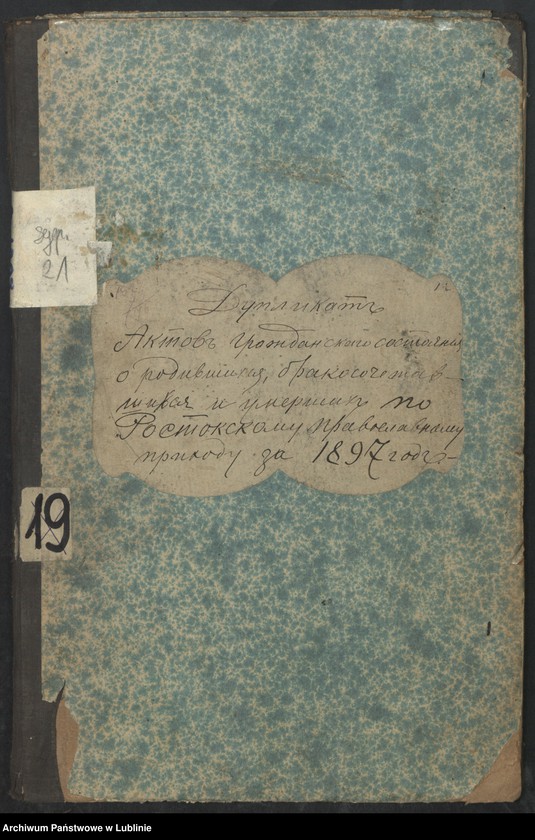 sygn.
21
Дупликатъ
Актовъ гражданскаго состоянія
о родившихся, бракосочетав-
шихся и умершихъ по
Ростокскому православному
приходу за 1897 годъ.
19
Archiwum Państwowe w Lublinie